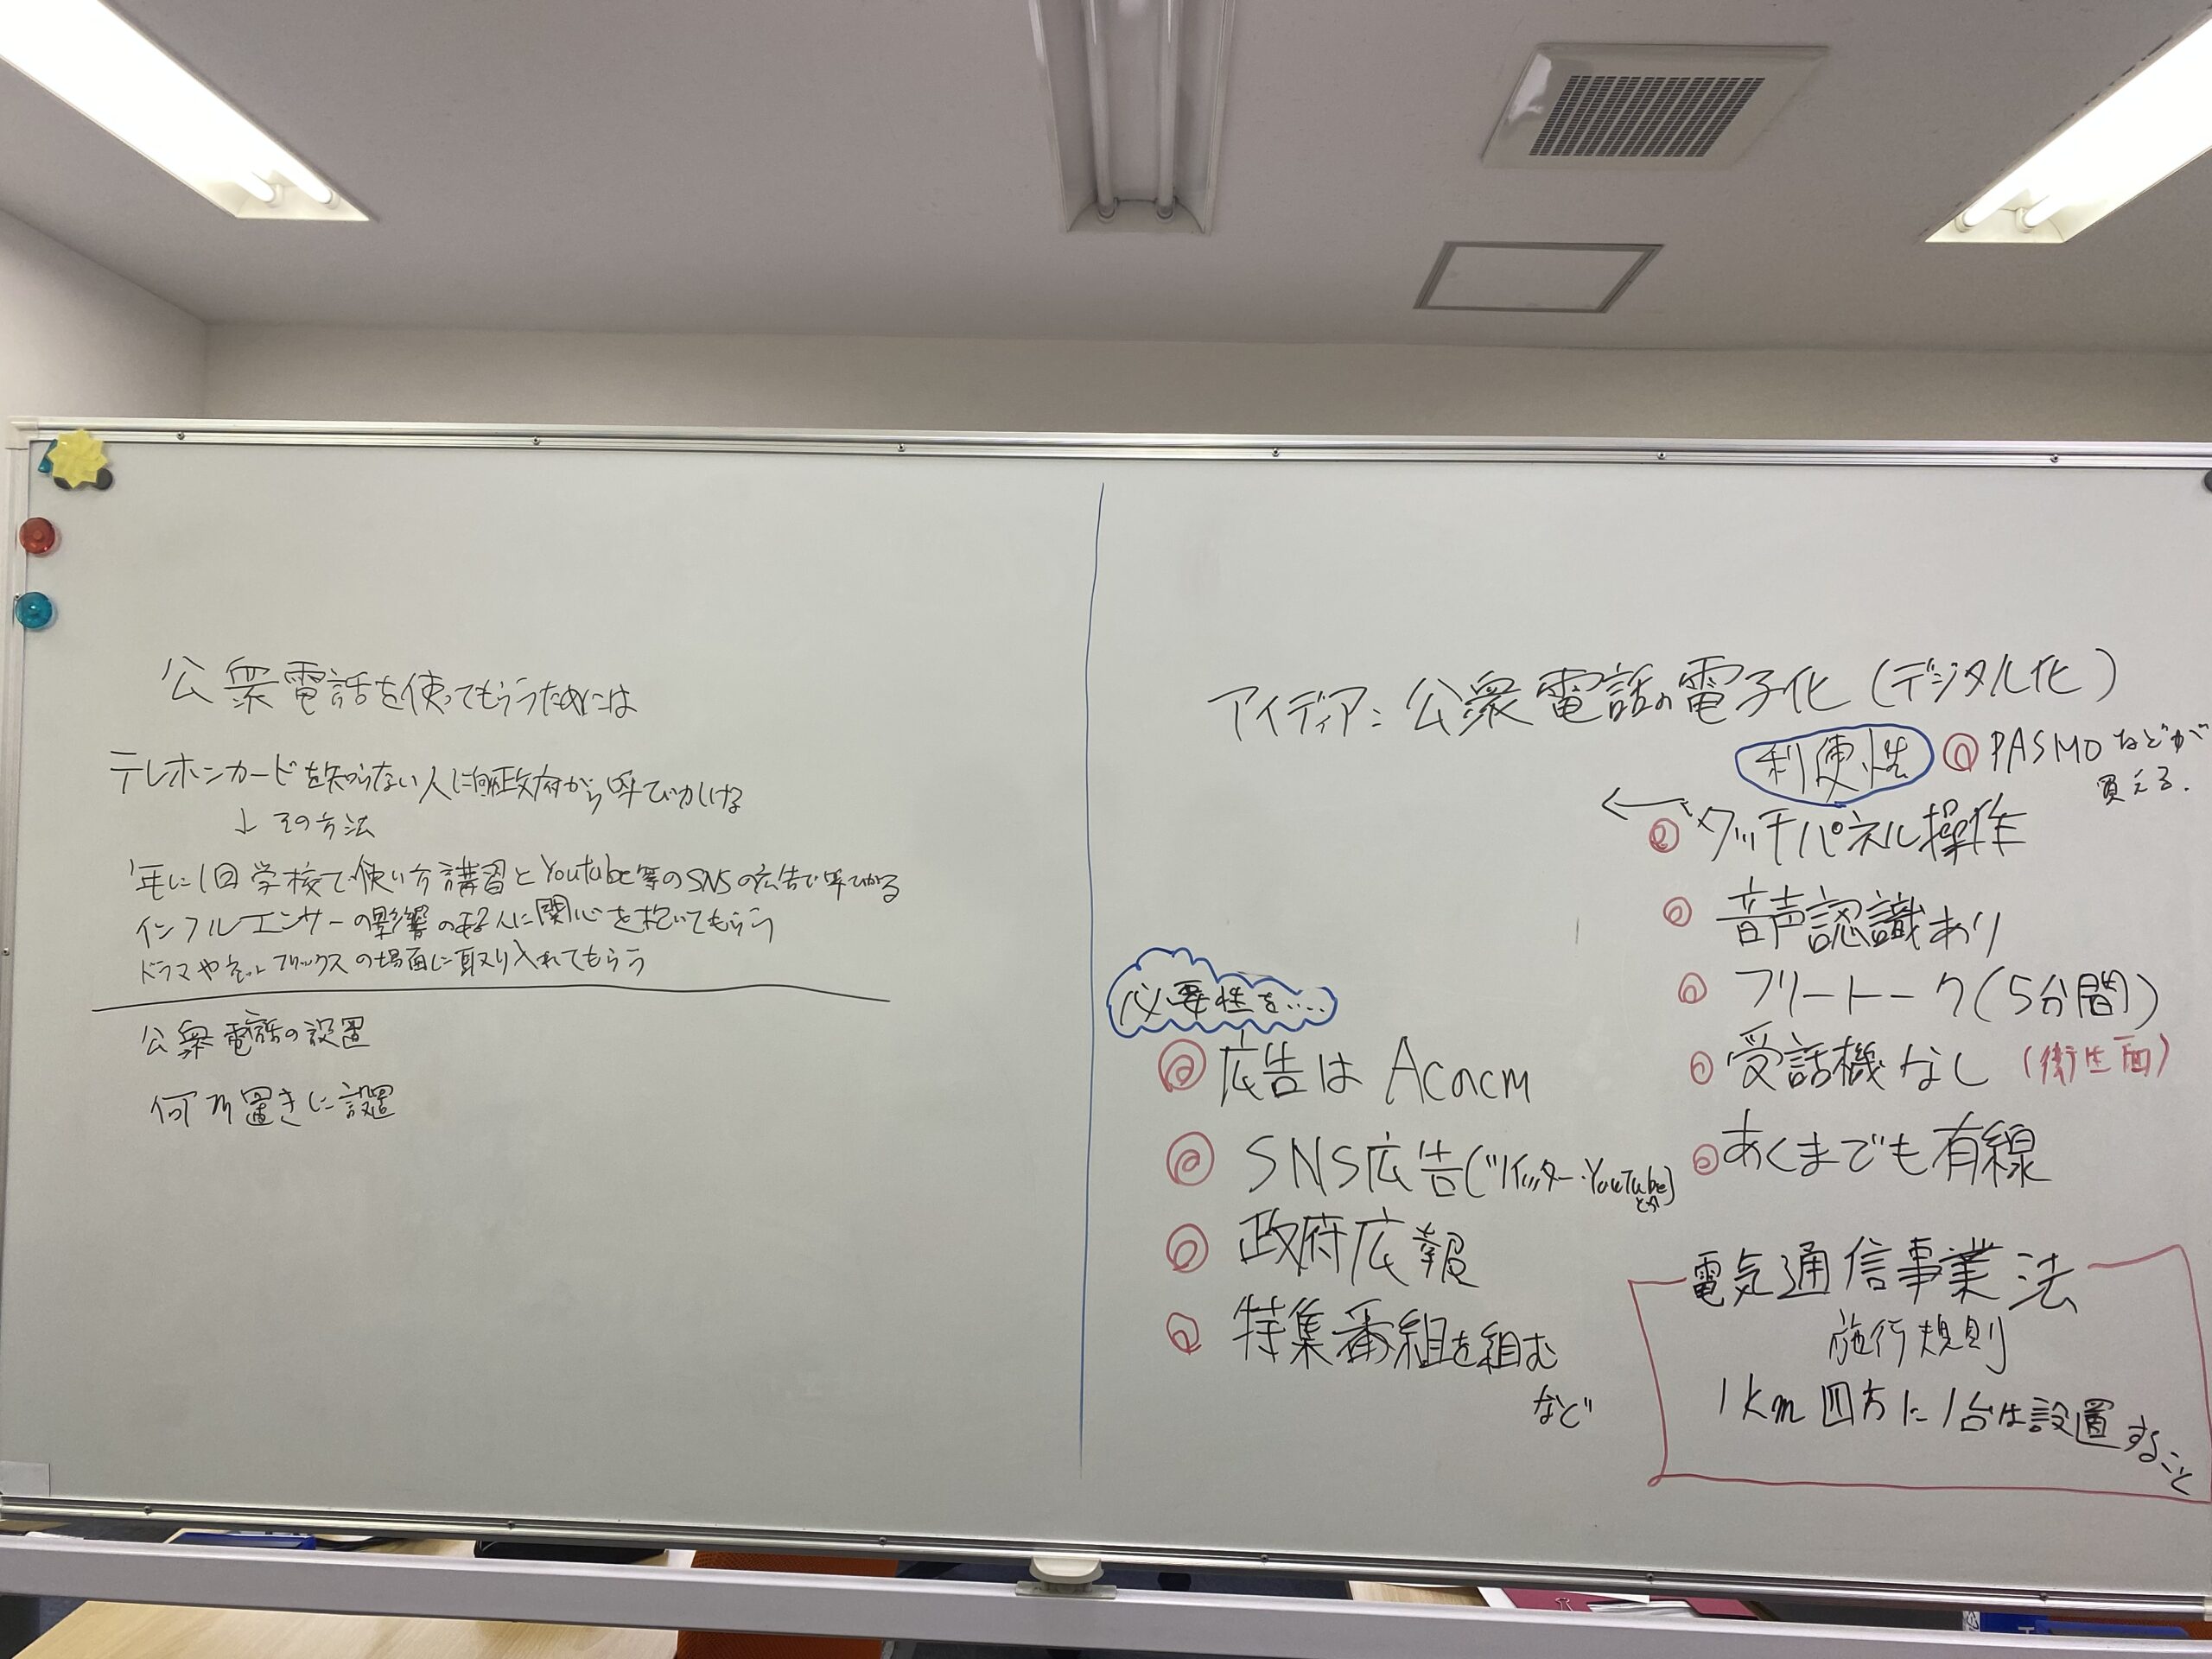 公衆電話を使ってもらうためには
テレホンカードを知らない人に向け政府から呼びかける
↓ その方法
年に1回学校で使い方講習とYoutube等のSNSの広告で呼びかる
インフルエンサーの影響のある人に関心を抱いてもらう
ドラマやネットフリックスの場面に取り入れてもらう
公衆電話の設置
何m置きに設置
アイディア：公衆電話の電子化（デジタル化）
利便性
◎PASMOなどが
買える.
←
◎タッチパネル操作
◎音声認識あり
◎フリートーク（5分間）
◎受話機なし（衛生面）
◎あくまでも有線
必要性を….
◎広告は
◎SNS広告（ツイッター・YouTubeとか）
◎政府広報
◎特集番組を組む
など
電気通信事業法
施行規則
1km四方に1台は設置すること